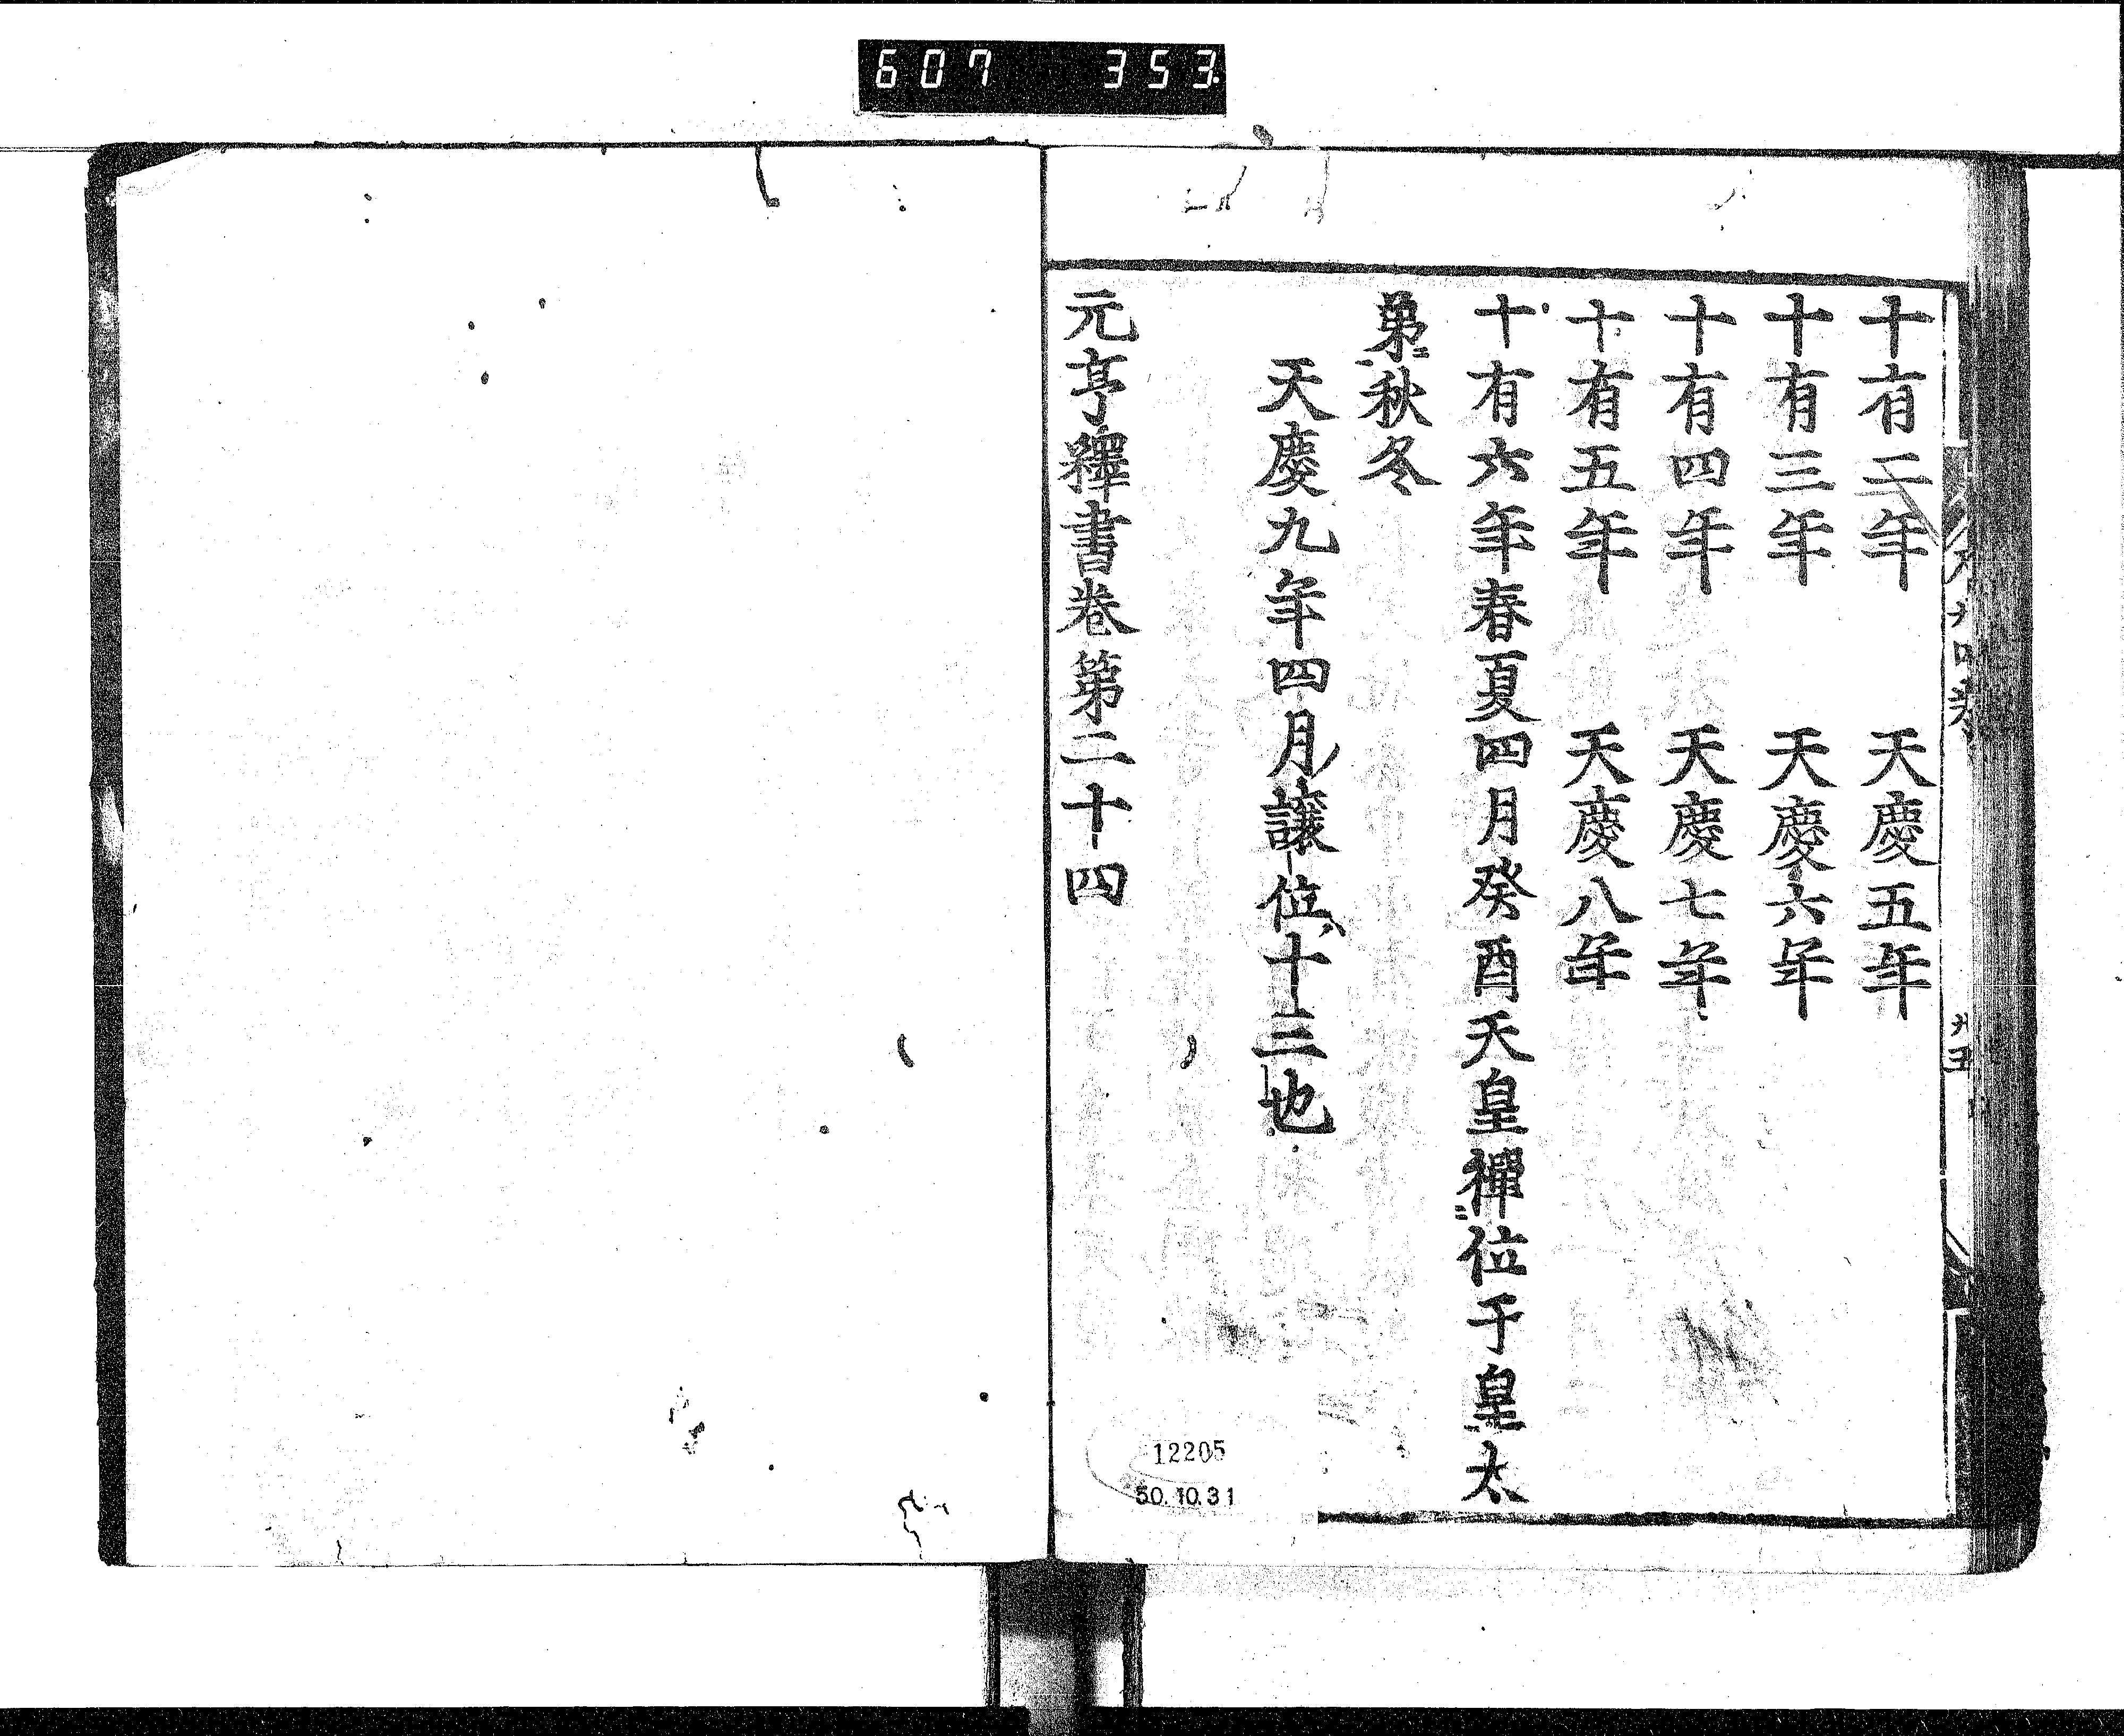 607 353
十有二年 天慶五年
十有三年 天慶六年
十有四年 天慶七年
十有五年 天慶八年
十有六年春夏四月癸酉天皇禪位于皇太
弟秋冬
天慶九年四月讓位十三也
元亨釋書卷第二十四
12205
50.10.31